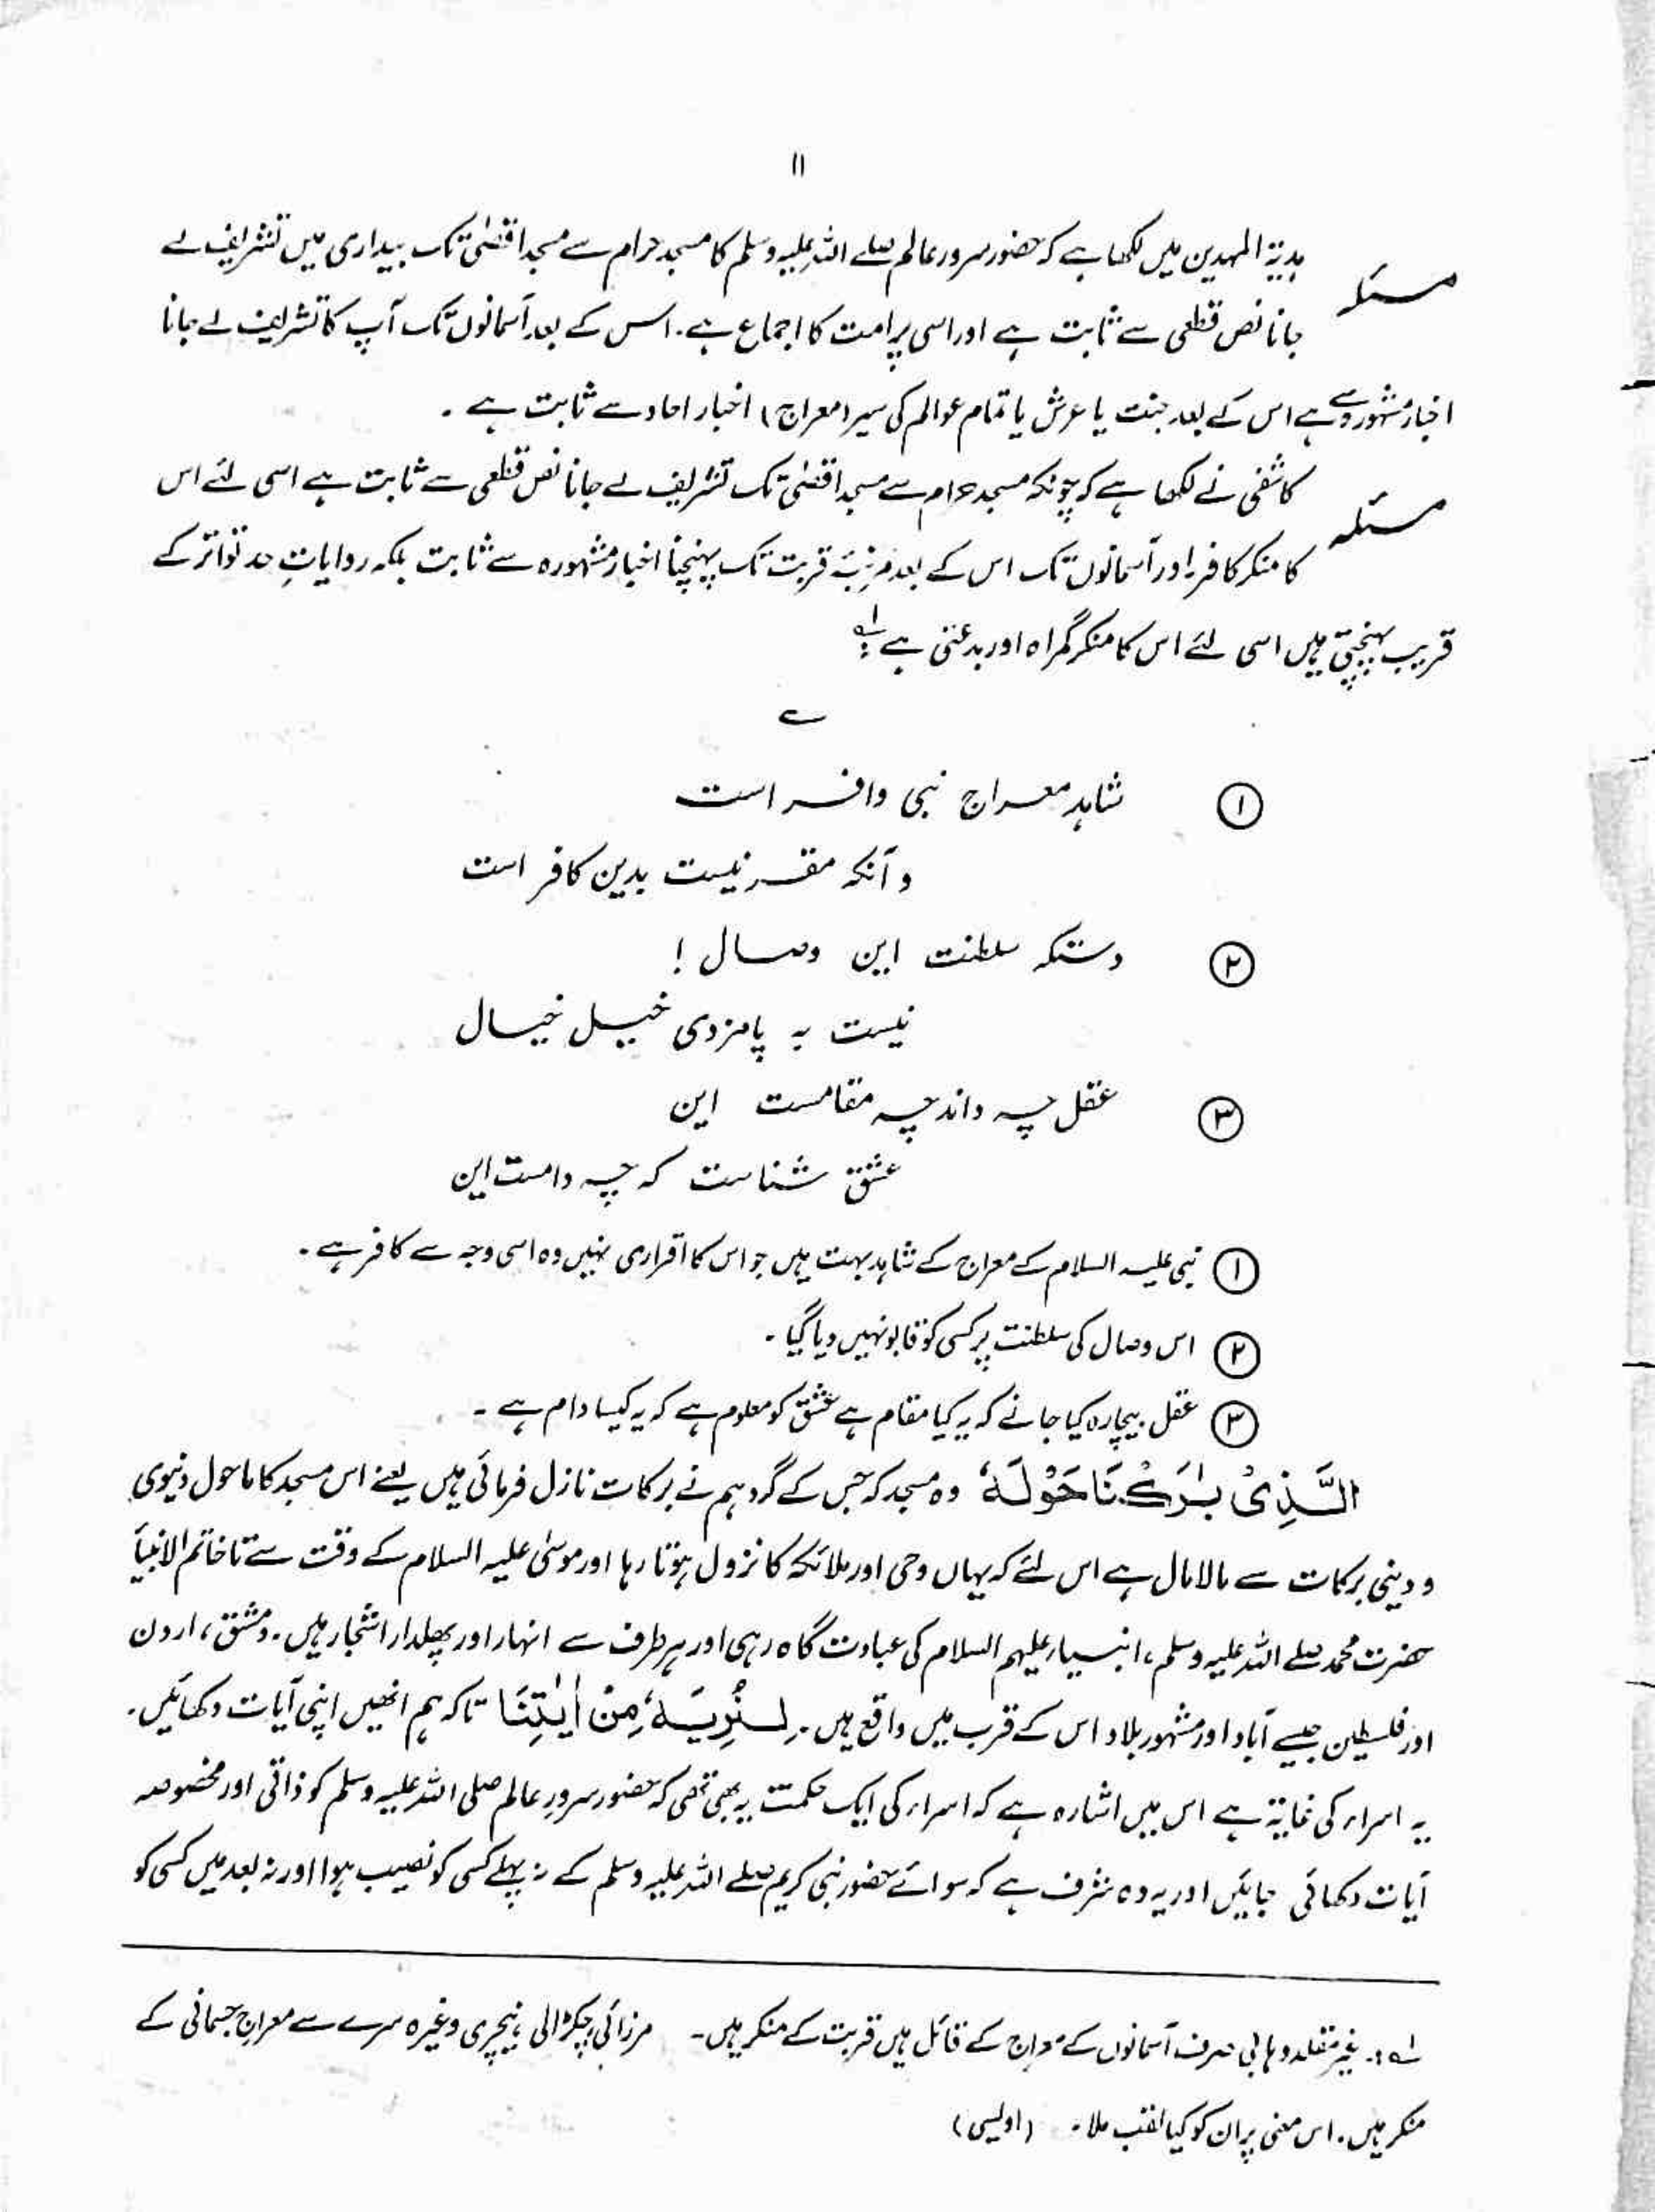 ۱۱
مسئلہ ہدیۃ المہدین میں لکھا ہے کہ حضور سرور عالم صلے اللہ علیہ وسلم کا مسجد حرام سے مسجد اقصٰی تک بیداری میں تشریف لے
جانا نص قطعی سے ثابت ہے اور اسی پر امت کا اجماع ہے۔ اس کے بعد آسمانوں تک آپ کا تشریف لے جانا
اخبار مشہورہ سے ہے اس کے بعد جنت یا عرش یا تمام عوالم کی سیر (معراج) اخبار احاد سے ثابت ہے ۔
مسئلہ کاشفی نے لکھا ہے کہ چونکہ مسجد حرام سے مسجد اقصٰی تک تشریف لے جانا نص قطعی سے ثابت ہے اسی لئے اس
کا منکر کافر اور آسمانوں تک اس کے بعد مرتبۂ قربت تک پہنچنا اخبار مشہورہ سے ثابت بلکہ روایاتِ حد تواتر کے
قریب پہنچتی ہیں اسی لئے اس کا منکر گمراہ اور بدعتی ہے لہ
؎
① شاہد معراج نبی وافر است
و آنکہ مقر نیست بدین کافر است
② دستگہ سلطنت این وصال !
نیست بہ پامزدی خیل خیال
③ عقل چہ داند چہ مقامست این
عشق شناست کہ چہ دامست این
① نبی علیہ السلام کے معراج کے شاہد بہت ہیں جو اس کا اقراری نہیں وہ اسی وجہ سے کافر ہے ۔
② اس وصال کی سلطنت پر کسی کو قابو نہیں دیا گیا ۔
③ عقل بیچارہ کیا جانے کہ یہ کیا مقام ہے عشق کو معلوم ہے کہ یہ کیسا دام ہے ۔
الَّذِیْ بٰرَکْنَا حَوْلَہٗ وہ مسجد کہ جس کے گرد ہم نے برکات نازل فرمائی ہیں یعنے اس مسجد کا ماحول دنیوی
و دینی برکات سے مالا مال ہے اس لئے کہ یہاں وحی اور ملائکہ کا نزول ہوتا رہا اور موسیٰ علیہ السلام کے وقت سے تا خاتم الانبیآ
حضرت محمد صلے اللہ علیہ وسلم ، انبیاء علیہم السلام کی عبادت گاہ رہی اور ہر طرف سے انہار اور پھلدار اشجار ہیں ۔ دمشق ، اردن
اور فلسطین جیسے آباد اور مشہور بلاد اس کے قرب میں واقع ہیں ۔ لِنُرِیَہٗ مِنْ اٰیٰتِنَا تاکہ ہم انھیں اپنی آیات دکھائیں ۔
یہ اسراء کی غایۃ ہے اس میں اشارہ ہے کہ اسراء کی ایک حکمت یہ بھی تھی کہ حضور سرورِ عالم صلی اللہ علیہ وسلم کو ذاتی اور مخصوصہ
آیات دکھائی جائیں اور یہ وہ شرف ہے کہ سوائے حضور نبی کریم صلے اللہ علیہ وسلم کے نہ پہلے کسی کو نصیب ہوا اور نہ بعد میں کسی کو
لہ :۔ غیر مقلد وہابی صرف آسمانوں کے معراج کے قائل ہیں قربت کے منکر ہیں ۔ مرزائی، چکڑالی، نیچری وغیرہ سرے سے معراج جسمانی کے
منکر ہیں ۔ اس معنی پر ان کو کیا لقب ملا ۔ (اویسی)